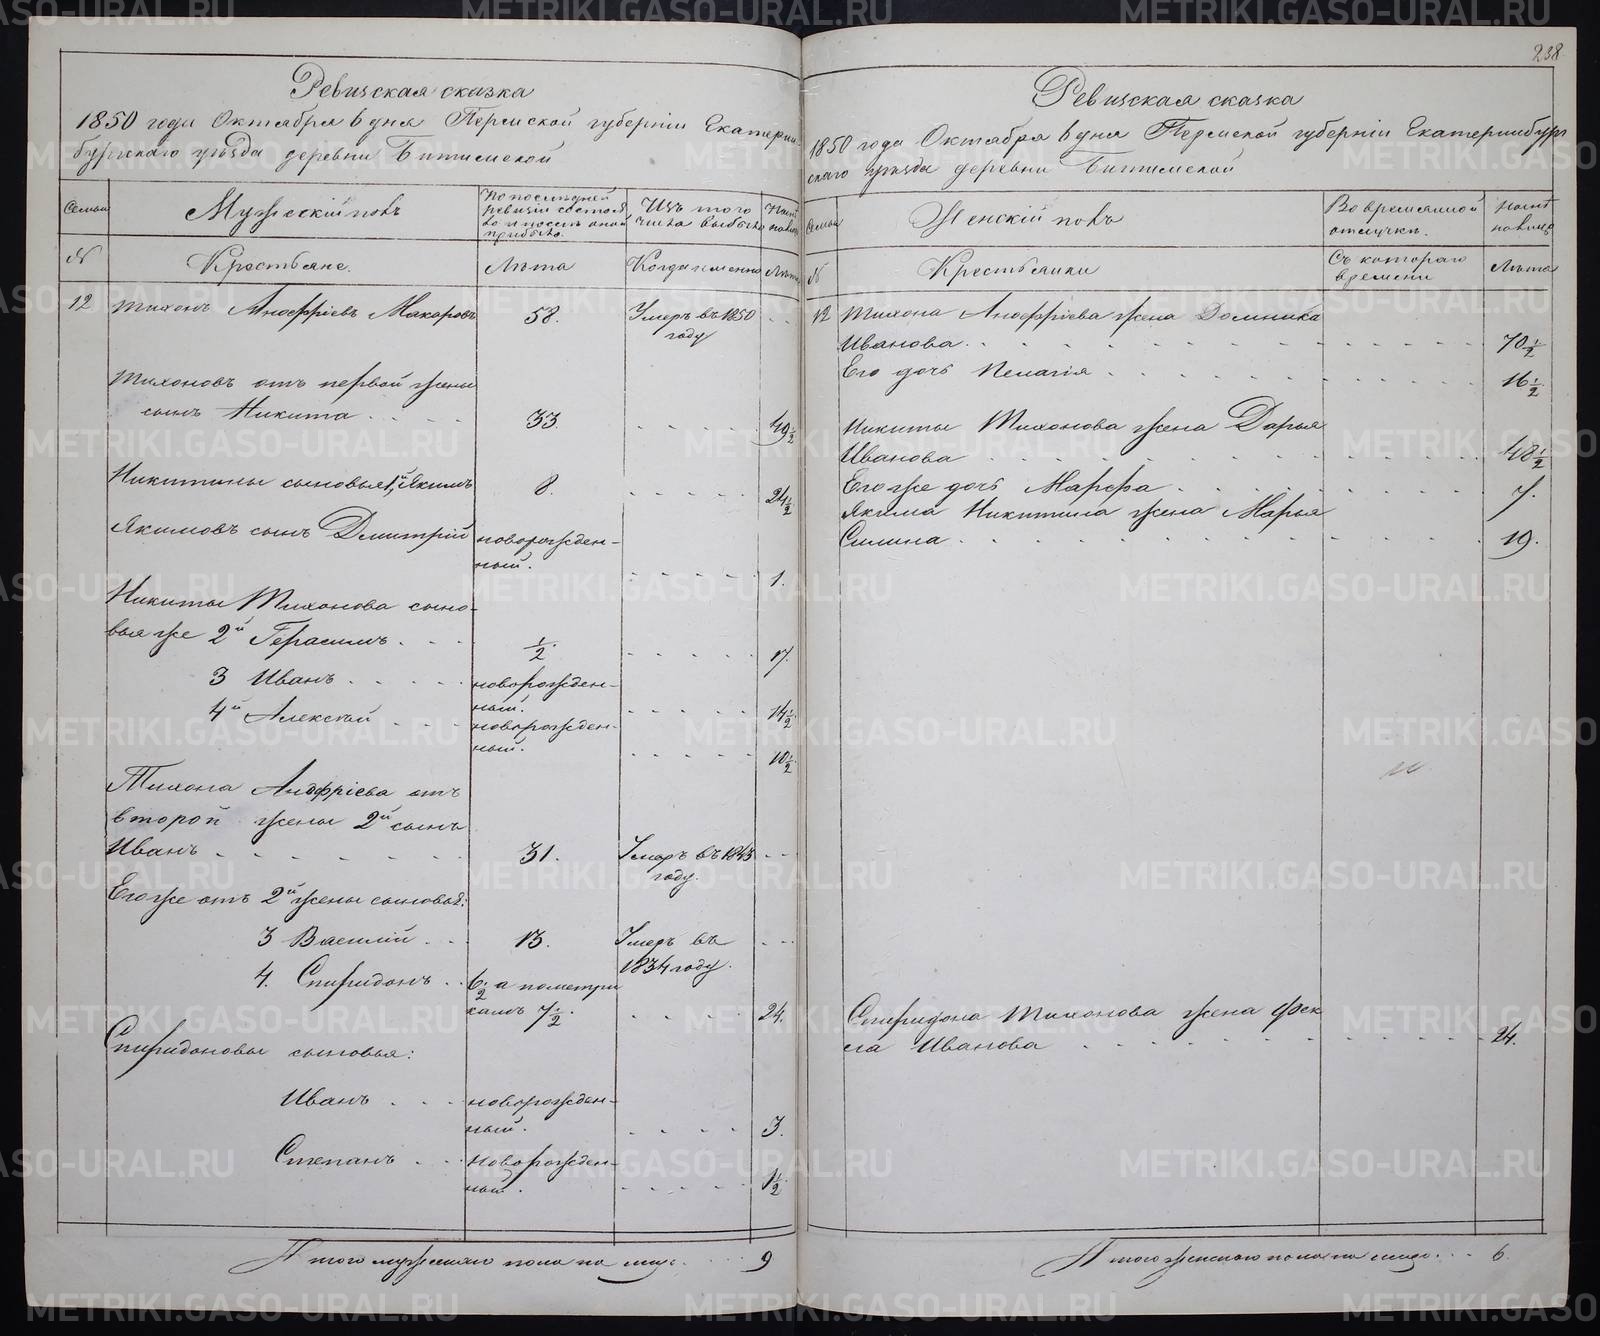 Ревизская сказка
1850 года Октября 6 дня Пермской губернiи Екатерин-
бургскаго уѣзда деревни Битимской
Семьи
Мужескiй полъ
По последней
ревизiи состоя-
ло и после оной
прибыло.
Изъ того
числа выбыло
Ныне
на лицо
№
Крестьяне.
Лѣта
Когда именно
Лѣта
12 Тихонъ Аноффрiевъ Макаровъ 58. Умеръ въ 1850
году
Тихоновъ отъ первой жены
сынъ Никита 33. 49½
Никитины сыновья 1й Якимъ 8. 24½
Якимовъ сынъ Дмитрiй новорожден-
ный. 1.
Никиты Тихонова сыно-
вья же 2й Герасимъ ½. 17.
3 Иванъ новорожден-
ный. 14½
4й Алексѣй новорожден-
ный. 10½
Тихона Аноффрiева отъ
второй жены 2й сынъ
Иванъ 31. Умеръ въ 1843
году.
Его же отъ 2й жены сыновья:
3 Василiй 13. Умеръ въ
1834 году.
4. Спиридонъ 6½ а по метри
камъ 7½. 24.
Спиридоновы сыновья:
Иванъ новорожден-
ный. 3.
Степанъ новорожден-
ный. 1½
Итого мужескаго пола на лицо 9
238
Ревизская сказка
1850 года Октября 6 дня Пермской губернiи Екатеринбург
скаго уѣзда деревни Битимской
Семьи
Женскiй полъ
Во временной
отлучке.
Ныне
на лицо
№
Крестьянки
Съ котораго
времени
Лѣта
12 Тихона Аноффрiева жена Домника
Иванова 70½
Его дочь Пелагiя 16½
Никиты Тихонова жена Дарья
Иванова 48½
Его же дочь Марфа 7.
Якима Никитина жена Марья
Силина 19.
Спиридона Тихонова жена Фек
ла Иванова 24.
Итого женскаго пола на лицо 6.
METRIKI.GASO-URAL.RU